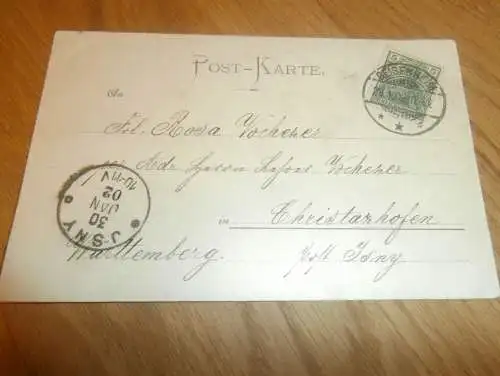 POST-KARTE.
An
Frl. Rosa Vochezer
Adr. Herrn Vochezer
in Christazhofen
Württemberg. post Isny
JSNY
30
JAN
02
10-11V